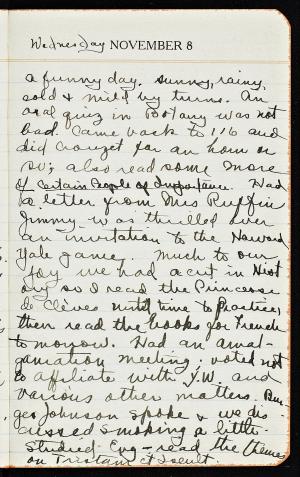 Wednesday NOVEMBER 8
a funny day. sunny, rainy,
cold & mild by turns. An
oral quiz in Botany was not
bad. Came back to 116 and
did crouzet for an hour or
so; also read some more
of Certain People of Importance. Had
a letter from Mrs Ruffin
Jimmy was thrilled over
an invitation to the Harvard
Yale game. Much to our
joy we had a cut in Hist
so I read the Princesse
de Clèves until time to practice;
then read the books for French
tomorrow. Had an amal-
gamation meeting. voted not
to affiliate with Y.W. and
various other matters.
Johnson spoke & we dis-
cussed smoking a little.
Studied Eng - read the themes
on Tristam & Iseult.